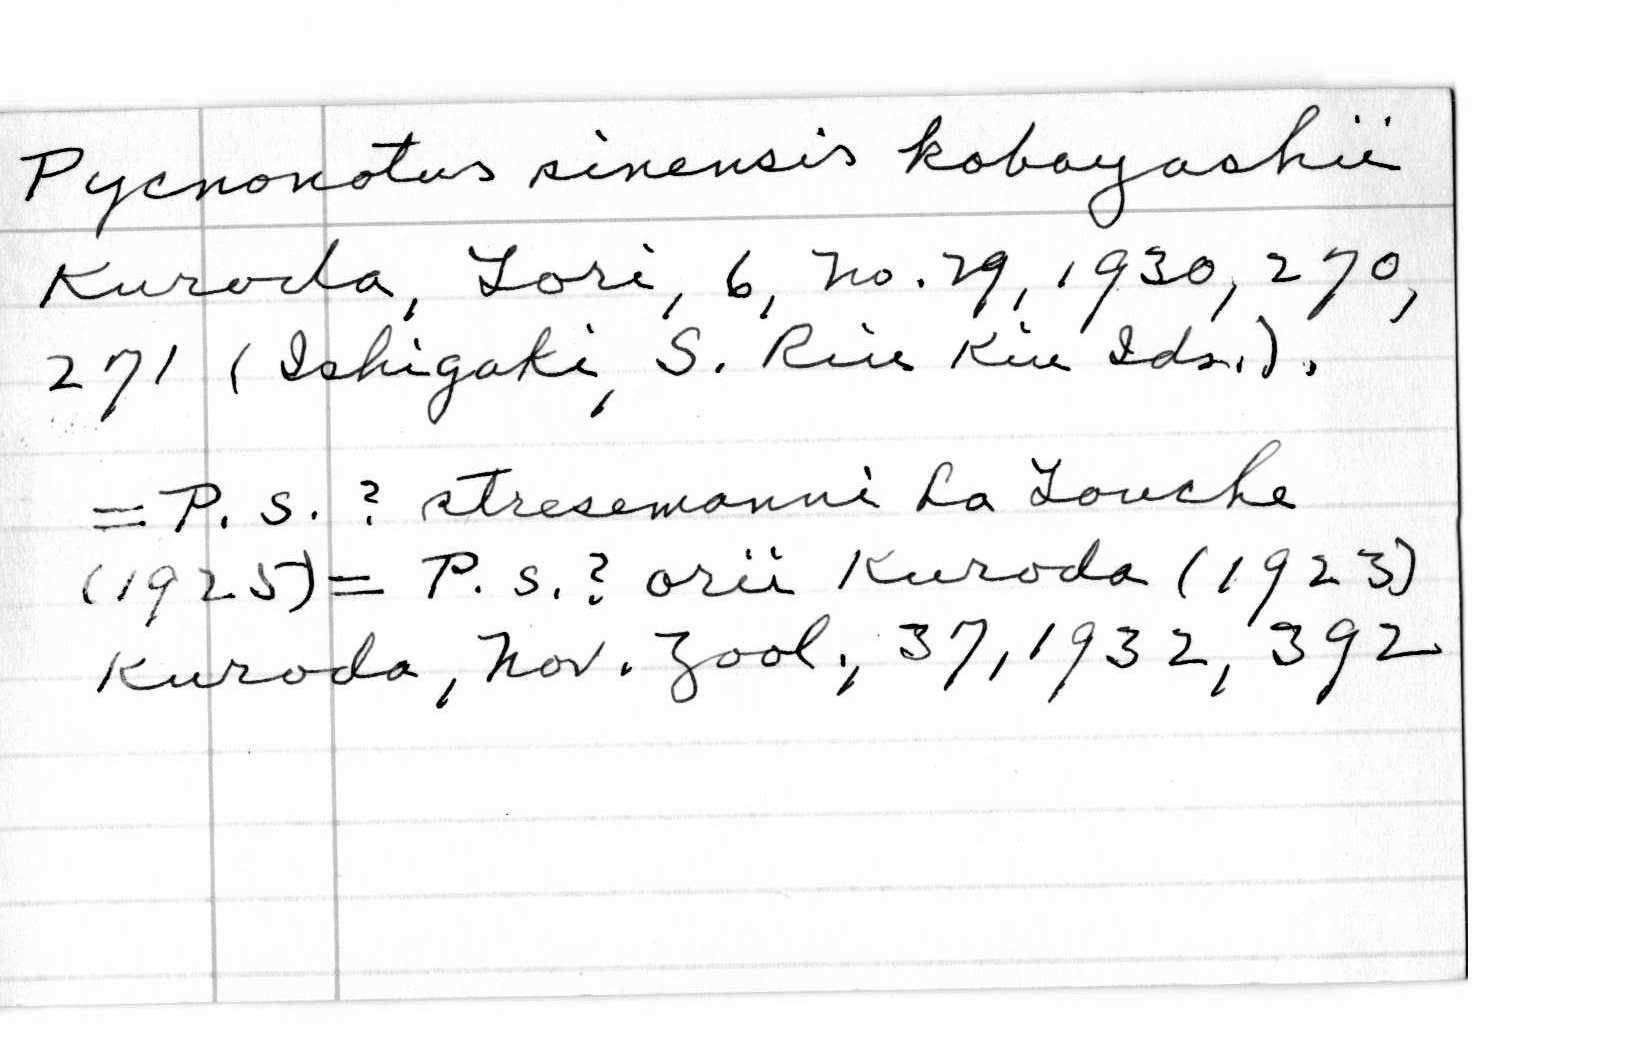 Pycnonotus sinensis kobayashii
Kuroda, Tori, 6, no. 29, 1930, 270,
271 (Ishigaki, S. Riu Kiu Ids.).
= P. s. ? stresemanni La Touche
(1925) = P. s. ? orii Kuroda (1923)
Kuroda, Nov. Zool., 37, 1932, 392